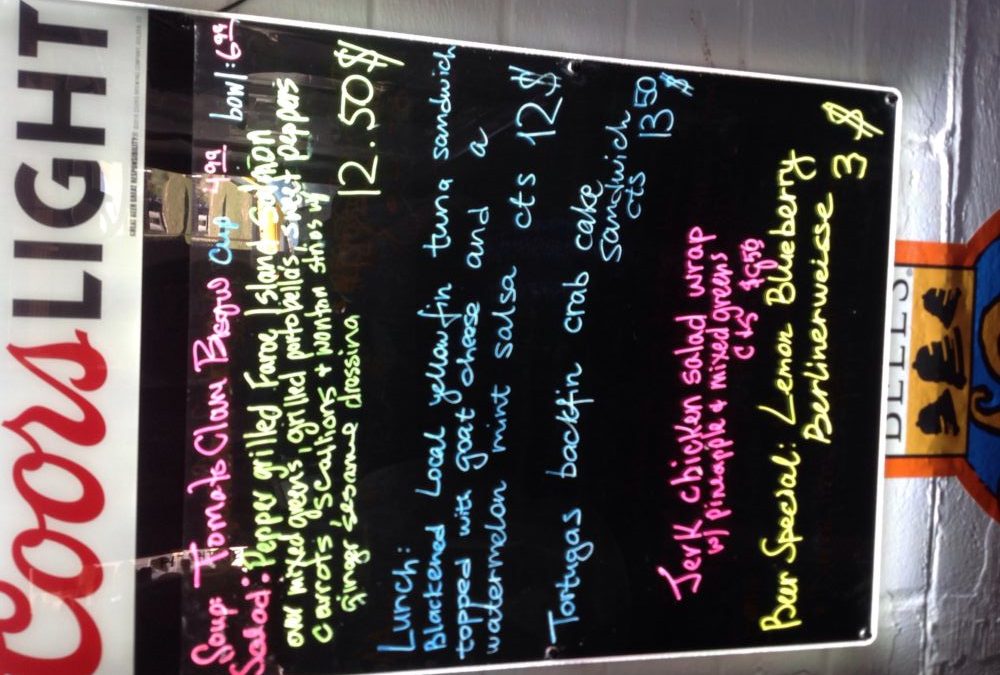 Coors LIGHT
GREAT BEER GREAT RESPONSIBILITY®
Soup: Tomato Clam Bisque Cup 4.99 bowl: 6.99
Salad: Pepper grilled Faroe Island Salmon
over mixed greens, grilled portobella's, sweet peppers
carrots, scallions & wonton strips w/
ginger sesame dressing 12.50$
Lunch:
Blackened Local yellowfin tuna sandwich
topped with goat cheese and a
watermelon mint salsa cts 12$
Tortugas backfin crab cake
sandwich
cts 13 50 $
Jerk chicken salad wrap
w/ pineapple & mixed greens
cts $9 50
Beer Special: Lemon Blueberry
Berlinerweisse
3 $
BELL'S